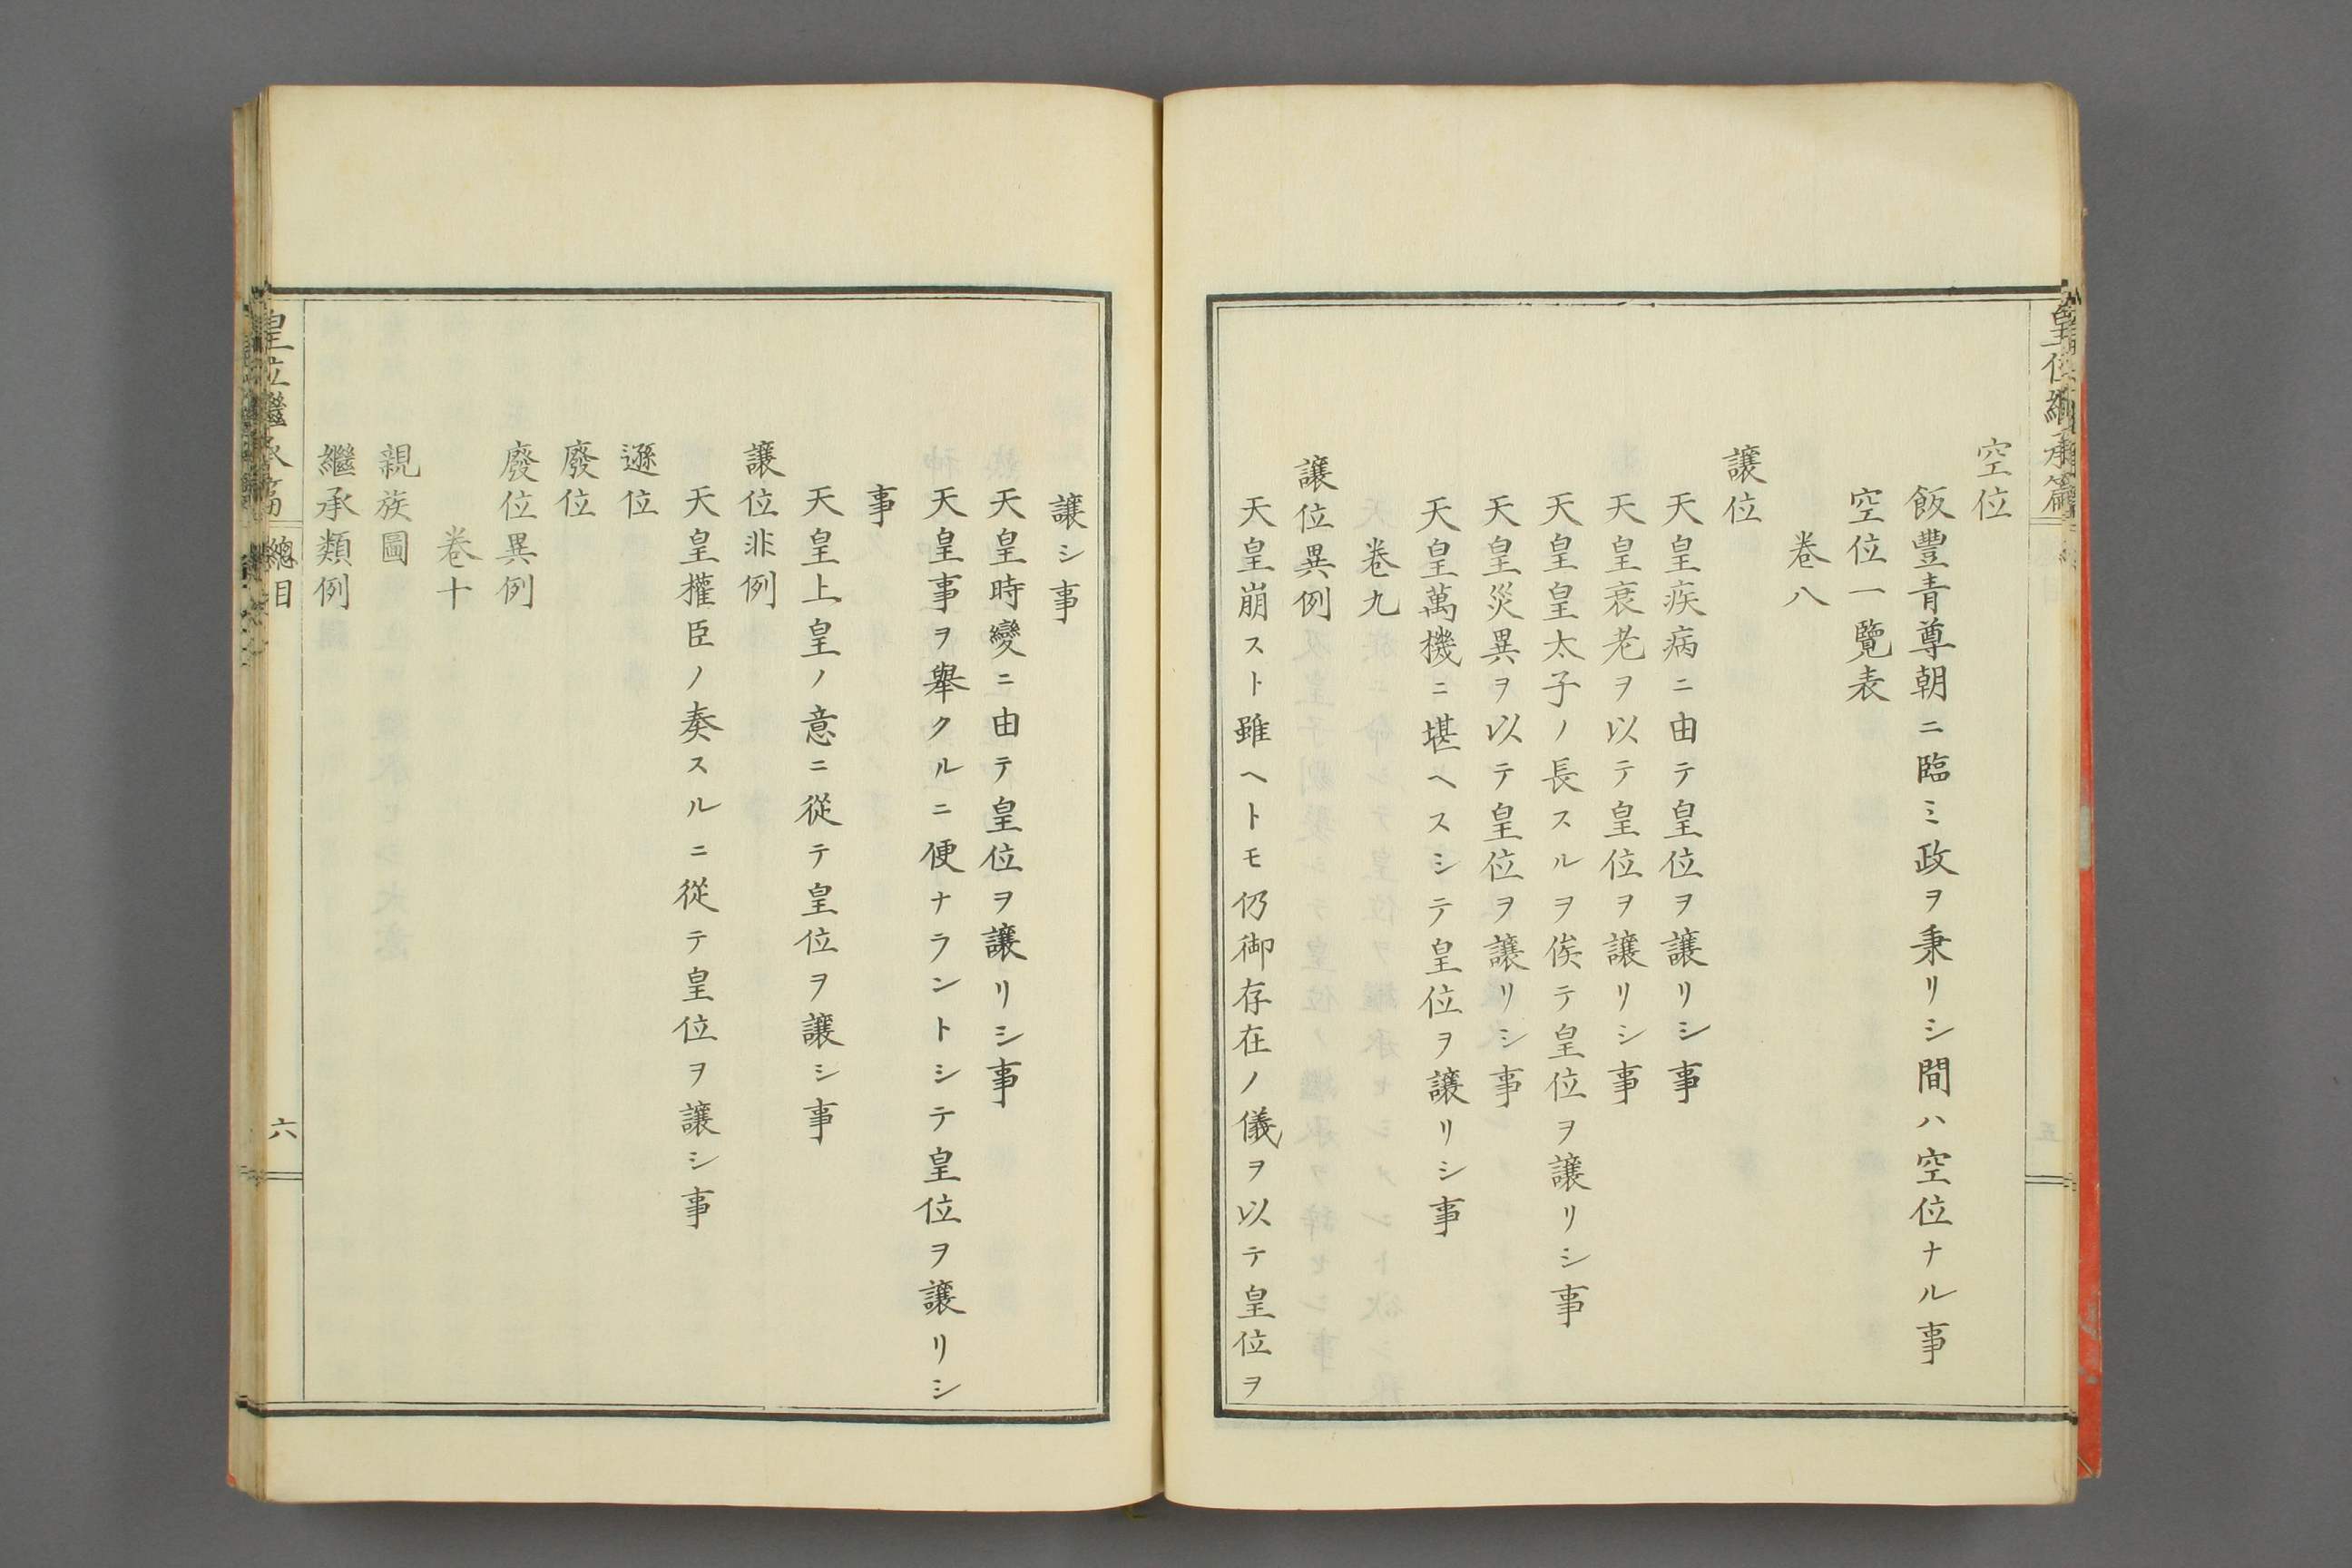 皇位繼承篇
空位
飯豐青尊朝ニ臨ミ政ヲ秉リシ間ハ空位ナル事
空位一覽表
卷八
讓位
天皇疾病ニ由テ皇位ヲ讓リシ事
天皇衰老ヲ以テ皇位ヲ讓リシ事
天皇皇太子ノ長スルヲ俟テ皇位ヲ讓リシ事
天皇災異ヲ以テ皇位ヲ讓リシ事
天皇萬機ニ堪ヘスシテ皇位ヲ讓リシ事
卷九
讓位異例
天皇崩スト雖ヘトモ仍御存在ノ儀ヲ以テ皇位ヲ
讓シ事
天皇時變ニ由テ皇位ヲ讓リシ事
天皇事ヲ舉クルニ便ナラントシテ皇位ヲ讓リシ
事
天皇上皇ノ意ニ從テ皇位ヲ讓シ事
讓位非例
天皇權臣ノ奏スルニ從テ皇位ヲ讓シ事
遜位
廢位
廢位異例
卷十
親族圖
繼承類例
皇位繼承篇 總目 六